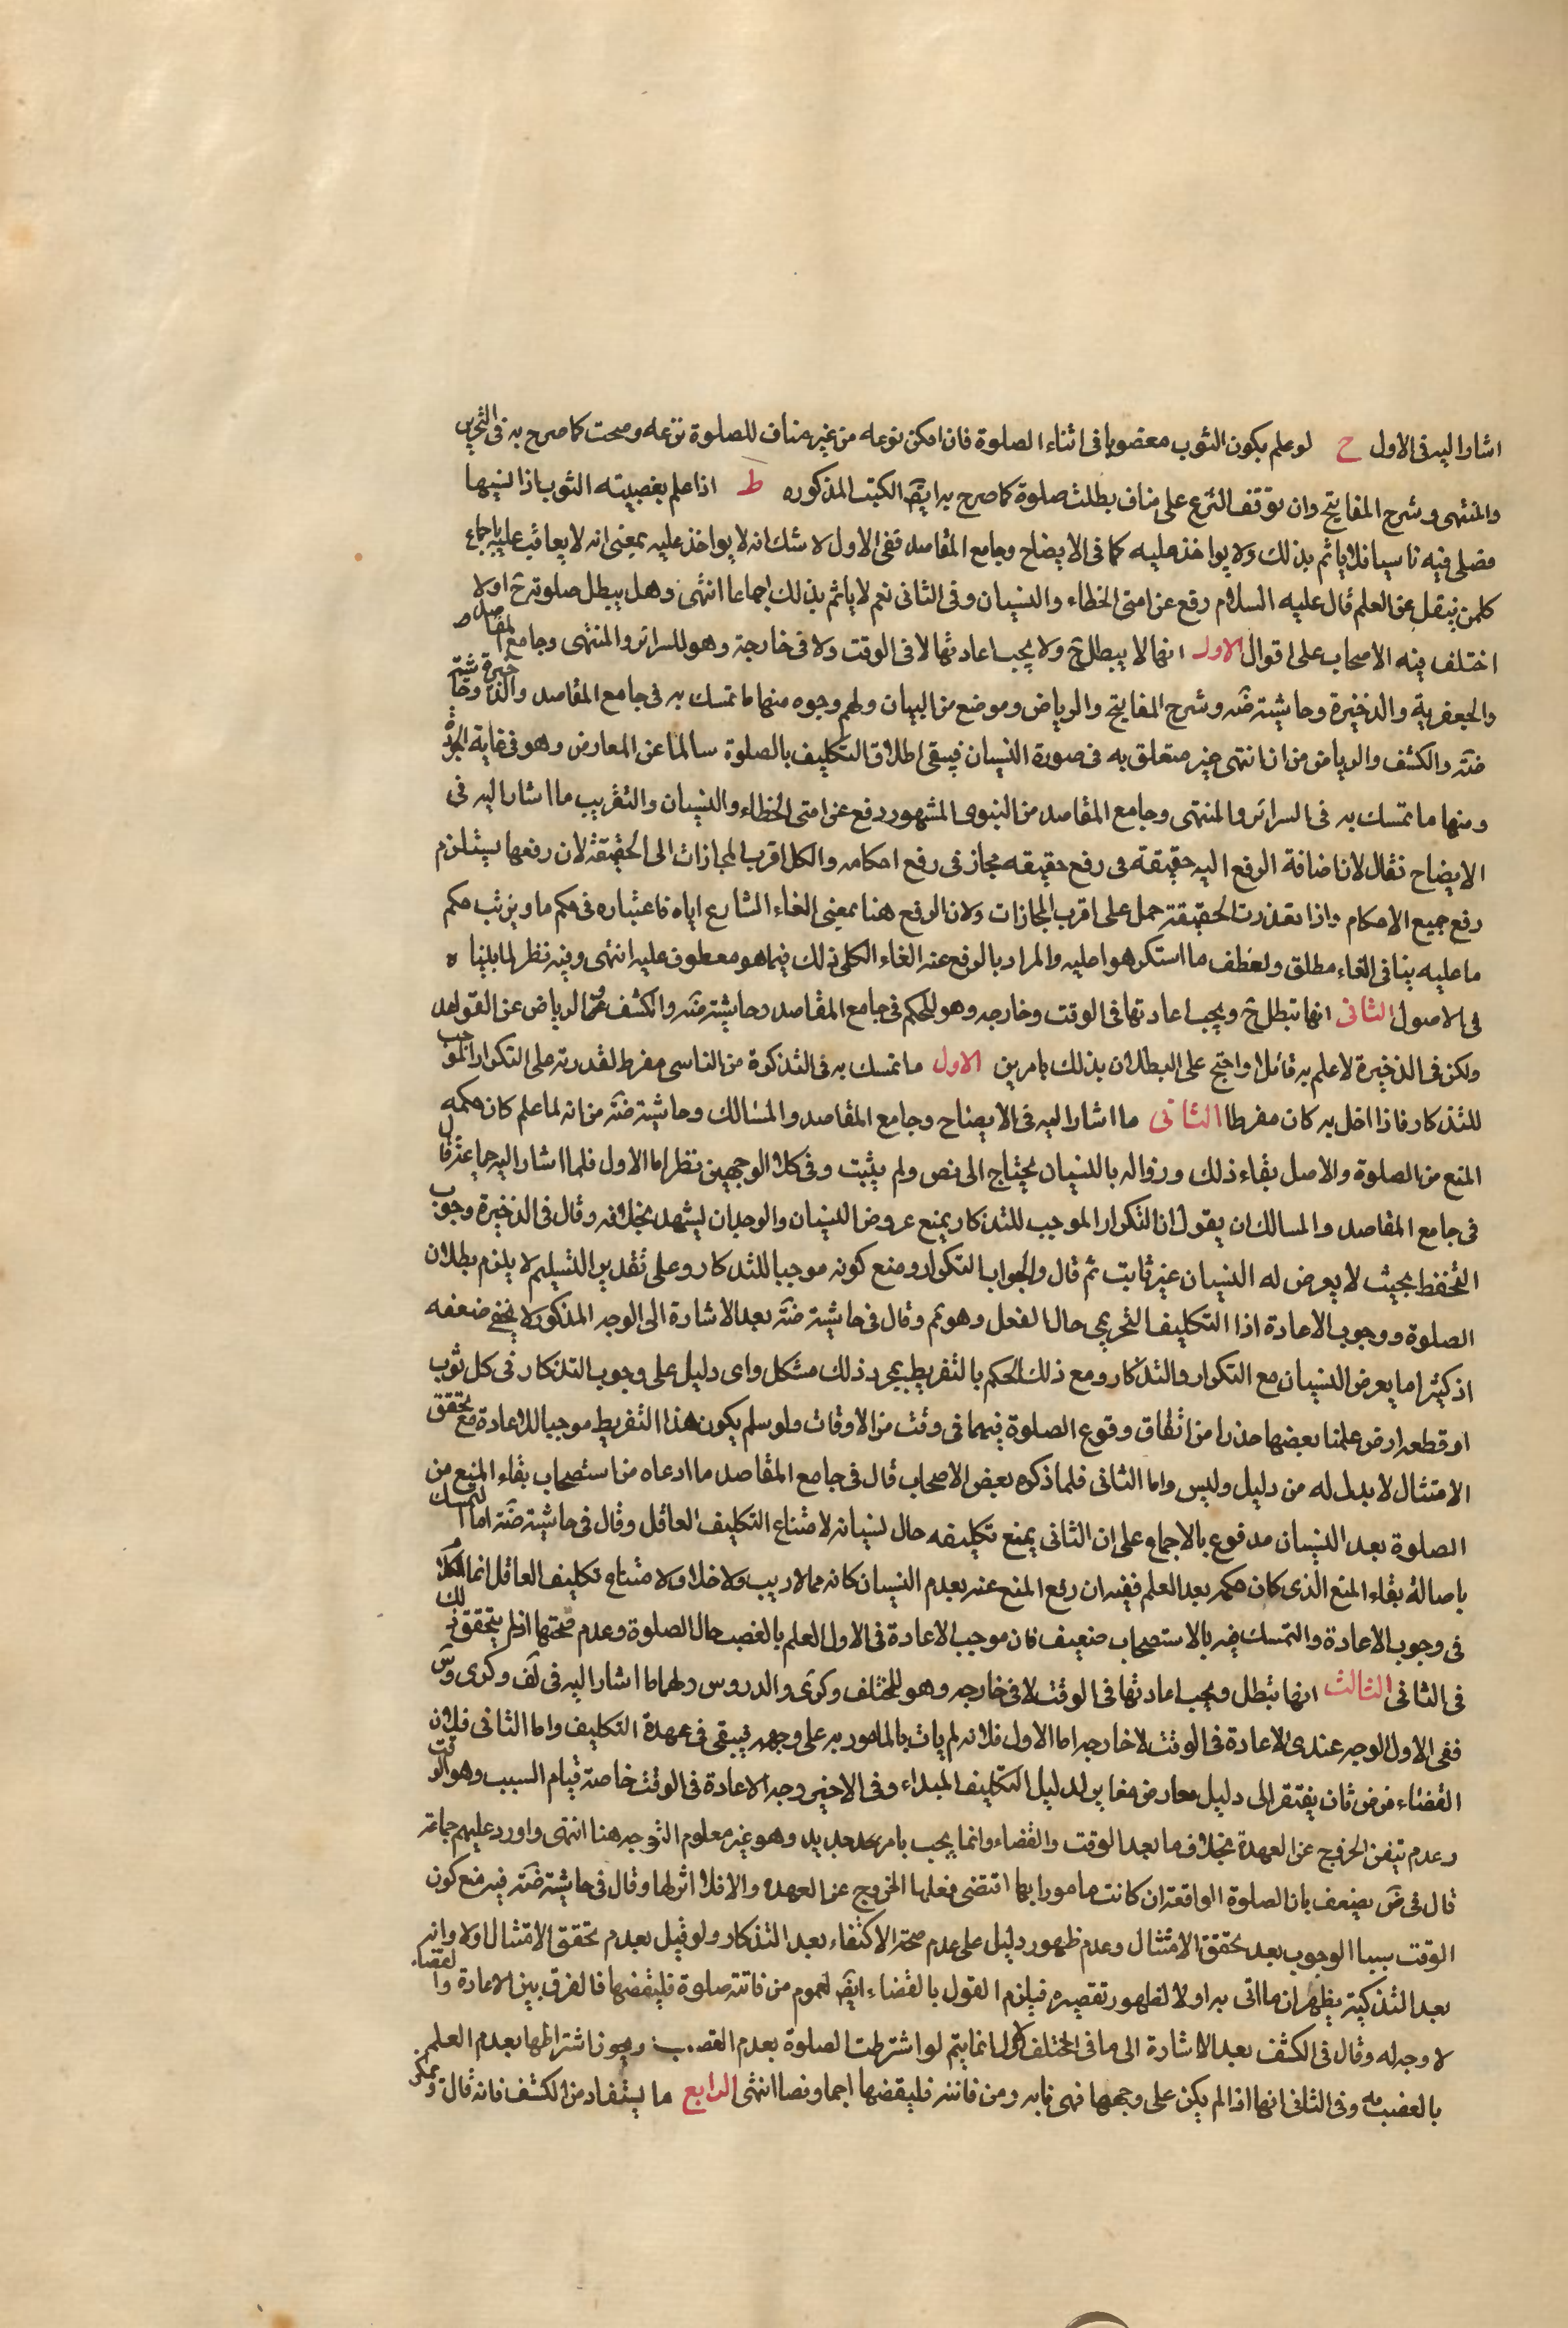 اشار اليه فى الاول ح لو علم بكون الثوب مغصوبا فى اثناء الصلوة فان امكن نزعه من غير مناف للصلوة نزعه وصحت كما صرح به فى التحرير
والمنتهى وشرح المفاتيح وان توقف النزع على مناف بطلت صلوة كما صرح به ايضا الكتب المذكوره ط اذا علم بغصبيته الثوب اذا نسيها
فصلى فيه ناسيا فلا ياثم بذلك ولا يواخذ عليه كما فى الايضاح وجامع المقاصد ففى الاول لا شك انه لا يواخذ عليه بمعنى انه لا يعاقب عليه باجماع
كلمن ينقل عن العلم قال عليه السلام رفع عن امتى الخطاء والنسيان وفى الثانى نعم لا ياثم بذلك اجماعا انتهى وهل يبطل صلوته ح اولا
اختلف فيه الاصحاب على اقوال الاول انها لا يبطل ح ولا يجب اعادتها لا فى الوقت ولا فى خارجة وهو للسرائر والمنتهى وجامع المقاصد
والجعفرية والذخيرة وحاشيته ضه وشرح المفاتيح والرياض وموضع من البيان ولهم وجوه منها ما تمسك به فى جامع المقاصد والذخيرة وحاشيته
ضه والكشف والرياض من ان النهى غير متعلق به فى صورة النسيان فيبقى اطلاق التكليف بالصلوة سالما عن المعارض وهو فى غاية الجودة
ومنها ما تمسك به فى السرائر والمنتهى وجامع المقاصد من النبوى المشهور رفع عن امتى الخطاء والنسيان والتقريب ما اشار اليه فى
الايضاح نقال لان اضافة الرفع اليه حقيقة فى رفع حقيقه مجاز فى رفع احكامه والكل اقرب المجازات الى الحقيقة لان رفعها يستلزم
رفع جميع الاحكام واذا تعذرت الحقيقة حمل على اقرب المجازات ولان الرفع هنا بمعنى الغاء الشارع اياه فاعتباره فى حكم ما وترتب حكم
ما عليه ينافى الغاء مطلق ولعطف ما استكرهوا عليه والمراد بالرفع عنه الغاء الكلى فذلك فيما هو معطوف عليه انتهى وفيه نظر لما بلينا ه
فى الاصول الثانى انها تبطل ح ويجب اعادتها فى الوقت وخارجه وهو للمحكم فى جامع المقاصد وحاشيته ضه والكشف والرياض عن القواعد
ولكن فى الذخيرة لا علم به قائلا واحتج على البطلان بذلك بامرين الاول ما تمسك به فى التذكرة من الناسى مفرط لقدرته على التكرار الموجب
للتذكار فاذا اخل به كان مفرطا الثانى ما اشار اليه فى الايضاح وجامع المقاصد والمسالك وحاشيته ضه من انه لما علم كان حكمه
المنع من الصلوة والاصل بقاء ذلك وزواله بالنسيان يحتاج الى نص ولم يثبت وفى كلا الوجهين نظر اما الاول فلما اشار اليه جماعة قال
فى جامع المقاصد والمسالك ان يقول ان التكرار الموجب للتذكار يمنع عروض النسيان والوجدان ليشهد بخلافه وقال فى الذخيرة وجوب
التحفظ بحيث لا يعرض له النسيان غير ثابت ثم قال والجواب التكرار ومنع كونه موجبا للتذكار وعلى تقدير التسليم لا يلزم بطلان
الصلوة ووجوب الاعادة اذا التكليف التحريمى حال الفعل وهو ثم وقال فى حاشيته ضه بعد الاشارة الى الوجه المذكور لا يخفى ضعفه
اذ كثيرا ما يعرض النسيان مع التكرار والتذكار ومع ذلك الحكم بالتفريط بمجرد ذلك مشكل واى دليل على وجوب التذكار فى كل ثوب
او قطعه ارض علمنا بعضها حذرا من اتفاق وقوع الصلوة فيهما فى وقت من الاوقات ولو سلم يكون هذا التفريط موجبا للاعادة مع تحقق
الامتثال لا بدل له من دليل وليس واما الثانى فلما ذكره بعض الاصحاب قال فى جامع المقاصد ما ادعاه من استصحاب بقاء المنع من
الصلوة بعد النسيان مدفوع بالاجماع على ان الثانى يمنع تكليفه حال نسيانه لامتناع التكليف العاقل وقال فى حاشيته ضه اما التمسك
باصالة بقاء المنع الذى كان حكمه بعد العلم ففيه ان رفع المنع عنه بعدم النسيان كانه مما لا ريب ولا خلاف ولا متناع تكليف العاقل انما الكلام
فى وجوب الاعادة والتمسك فيه بالاستصحاب ضعيف فان موجب الاعادة فى الاول العلم بالغصب حال الصلوة وعدم صحتها اذ لم يتحقق ذلك
فى الثانى الثالث انها تبطل ويجب اعادتها فى الوقت لا فى خارجه وهو للمختلف وكرى والدروس ولهما ما اشار اليه فى لف وكرى وس
ففى الاول الوجه عندى الاعادة فى الوقت لا خارجه اما الاول فلانه لم يات بالمامور به على وجهه فيبقى فى عهدة التكليف واما الثانى فلان
القضاء فرض ثان يفتقر الى دليل معارض مغاير لدليل التكليف المبداء وفى الاخير وجه الاعادة فى الوقت خاصة قيام السبب وهو الوقت
وعدم تيقن الخروج عن العهدة بخلاف ما بعد الوقت والقضاء وانما يجب بامر جديد وهو غير معلوم التوجه هنا انتهى واورد عليهم جماعة
قال فى ض يضعف بان الصلوة الواقعة ان كانت مامورا بها اقتضى فعلها الخروج عن العهدة والا فلا اثر لها وقال فى حاشيته ضه فيه منع كون
الوقت سببا الوجوب بعد تحقق الامتثال وعدم ظهور دليل على عدم صحة الاكتفاء بعد التذكار ولو قيل بعدم تحقق الامتثال اولا وانه
بعد التذكية يظهر ان ما اتى به اولا لظهور تقصيره فيلزم القول بالقضاء ايضا لعموم من فاتته صلوة فليقضها فالفرق بين الاعادة والقضاء
لا وجه له وقال فى الكشف بعد الاشارة الى ما فى المختلف الاول انما يتم لو اشترطت الصلوة بعدم الغصب ويجوز اشتراطها بعدم العلم
بالغصب به وفى الثانى انها اذا لم يكن على وجهها فهى فايه ومن فاتته فليقضها اجماعا ونصا انتهى الرابع ما يستفاد من الكشف فانه قال ويمكن